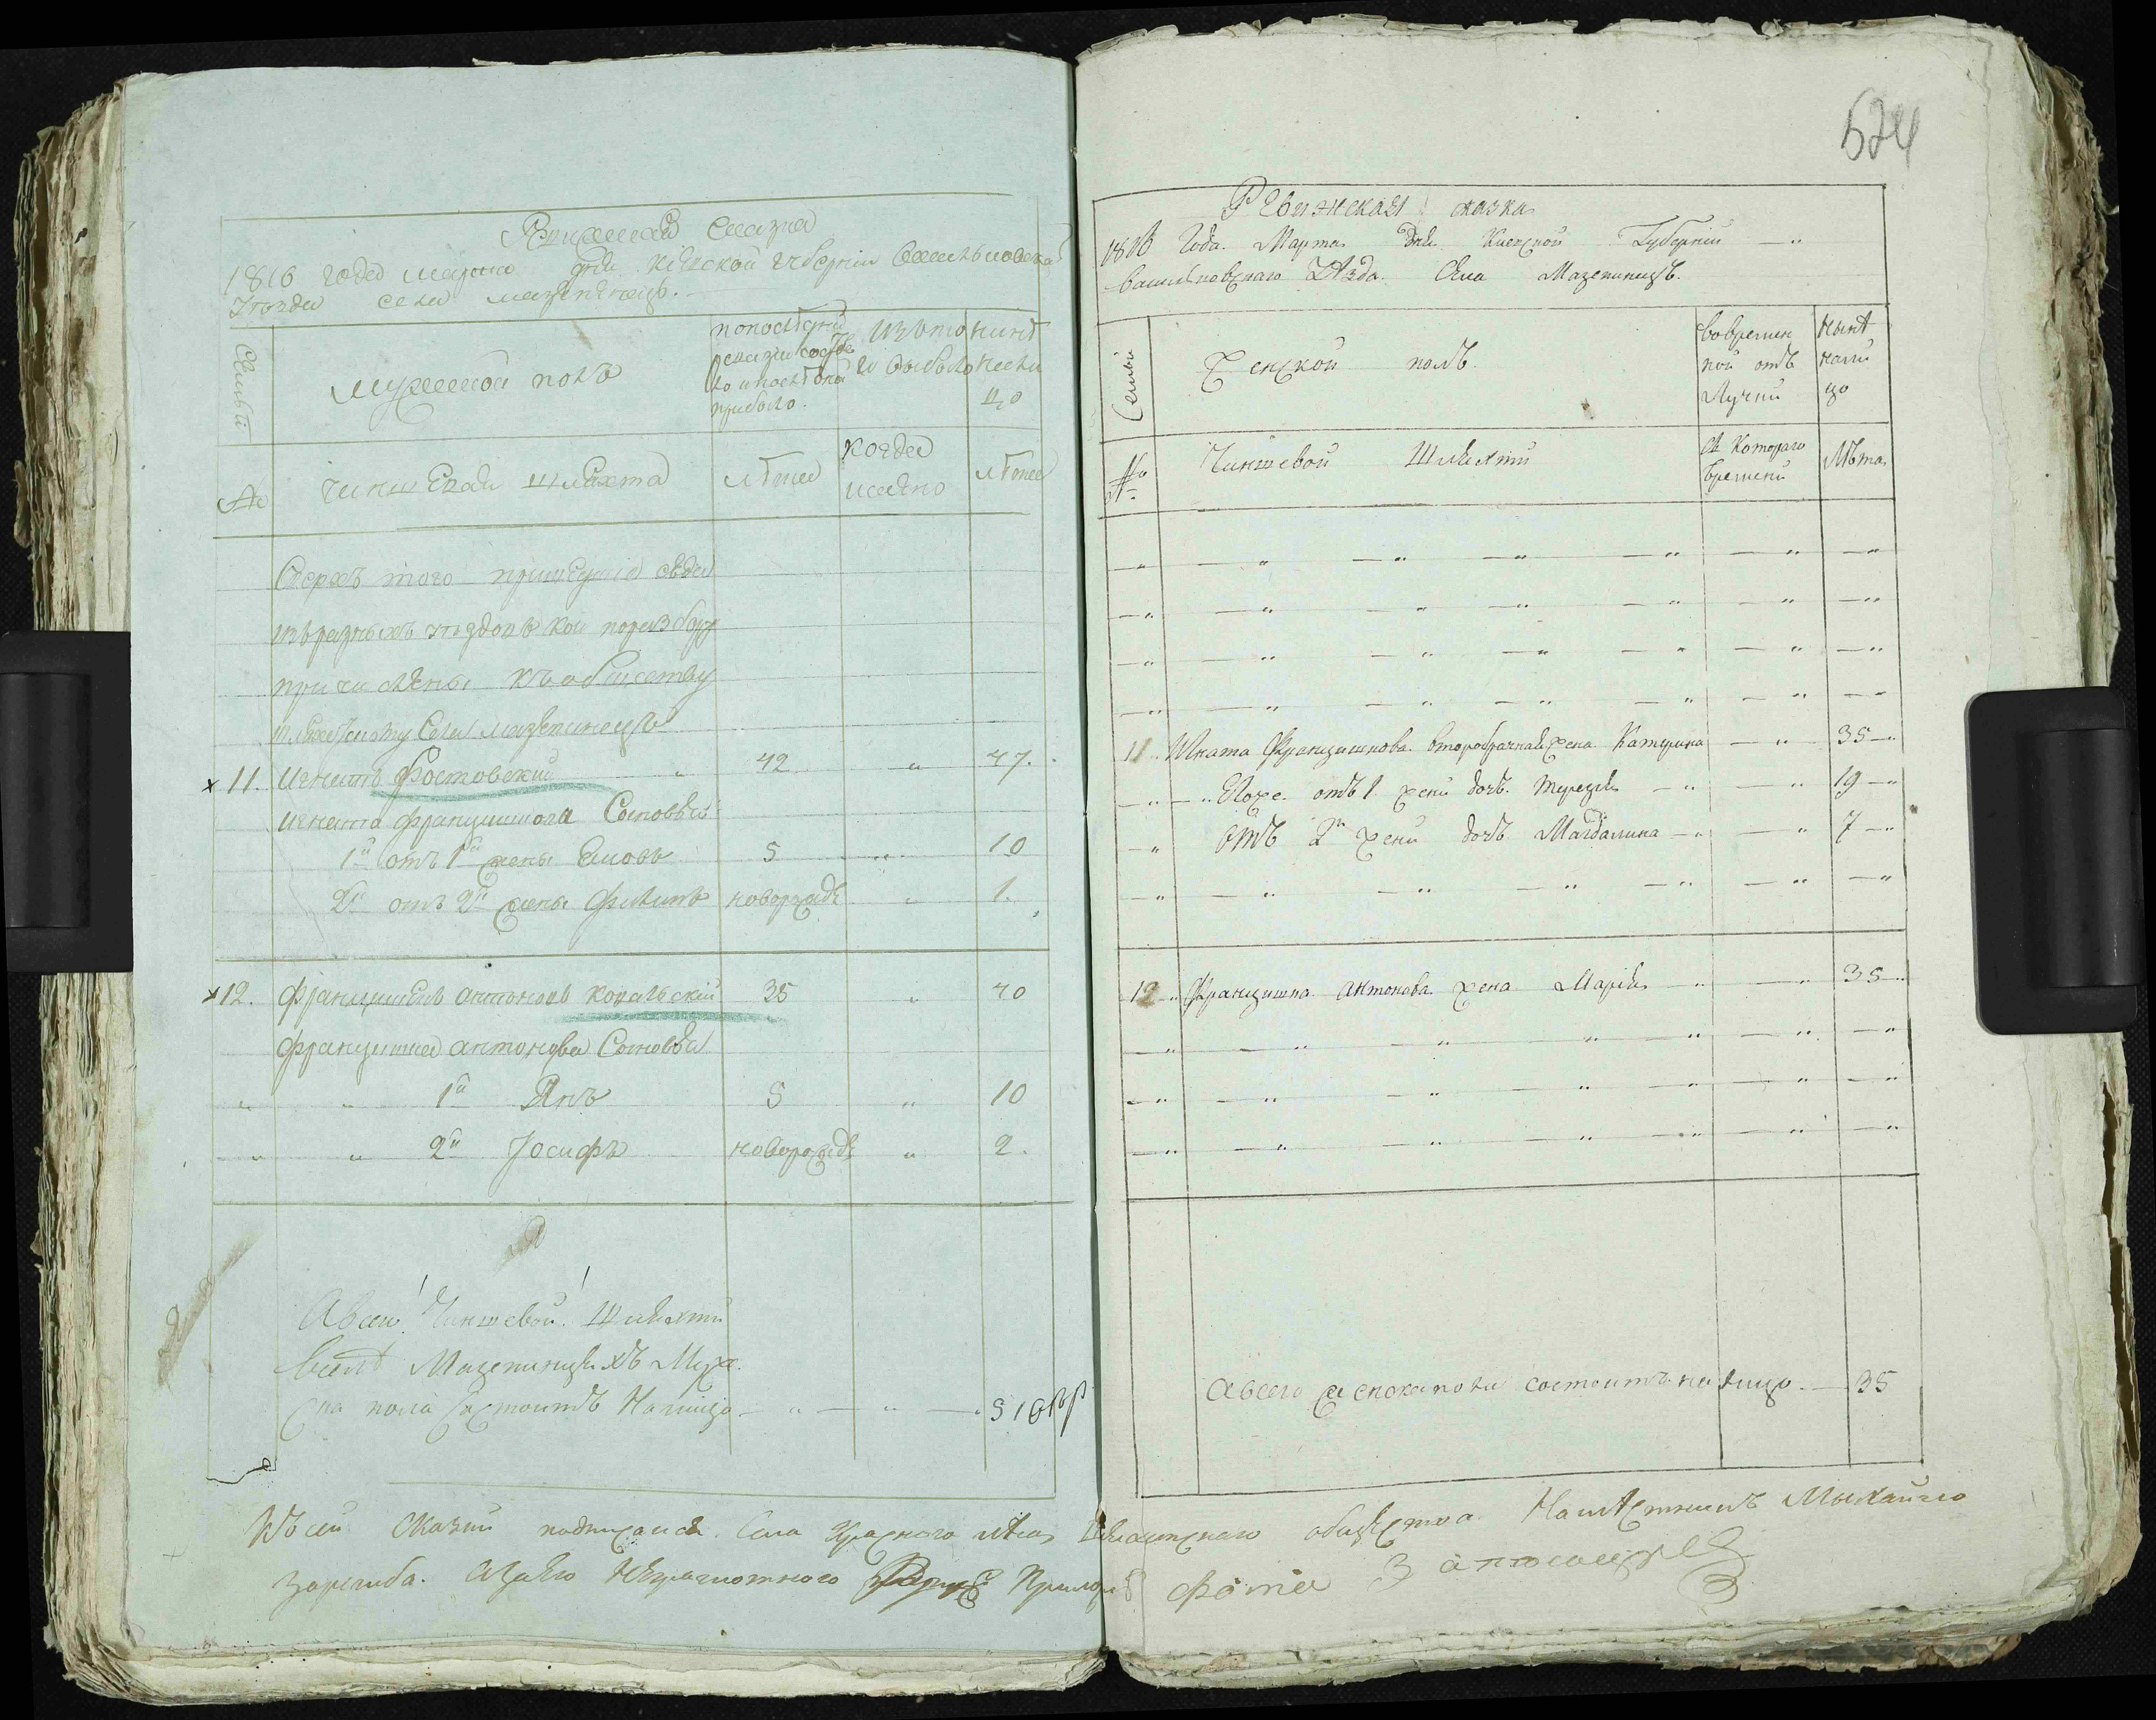 Ревижская Сказка
1816 года марта дня Киевской губернии Васильковска
Уезда села мазепинець.
Семьи
мужеской полъ
попоследней ревизии состоя ло и после оной прибыло.
Изъ то го выбыло
нинѣ нали цо
№
чиншевой шляхта
лѣта
когда имянно
лѣта
Сверхъ того пришедшіе сюда
изъ разныхъ уѣздовъ кои по разбору
причислены къ обществу
шляхетству Села мазепинець
11. Игнатъ Фостовский " 42 " 47.
Игната францишкова Сыновья
1й отъ 1й жены Яковъ 5 " 10
2й отъ 2й жены Филипъ новорожде " 1.
12. францишекъ антоновъ ковальский 35 " 40
францишка антонова Сыновья
" " 1й Янъ 5 " 10
" " 2й Іосифъ новорожде " 2.
А всего Чиншевой Шляхти
в селѣ Мазепинцяхъ Муже
ска пола состоитъ Налицо — " — " — 51
624
Ревижская сказка
1816 Года Марта дня Киевской Губерніи — "
Васильковскаго Уѣзда Села Мазепинецъ.
Семьи
Женской полъ
Вовремен ной отъ лучки
Нынѣ нали цо
№
Чиншевой Шляхти
Съ Котораго времени
Лѣта
— " — " — " — " — " — " — "
— " — " — " — " — " — " — "
— " — " — " — " — " — " — "
— " — " — " — " — " — " — "
11. Игната Францишкова второбрачная жена Катерина — " 35 — "
— " — " Егоже отъ 1 жени дочъ Терезія — " — " 19 — "
— " отъ 2й жени дочъ Магдалина — " — " 7 — "
— " — " — " — " — " — " — "
12 — " Францишка Антонова жена Марія — " — " 35 — "
— " — " — " — " — " — " — "
— " — " — " — " — " — " — "
— " — " — " — " — " — " — "
А всего женска пола состоитъ на лицо. — 35
Къ сей сказки подписался Села Краснаго лѣса Шляхетскаго общества Намѣстникъ Михайло
Заремба. А за его неграмотного Фома